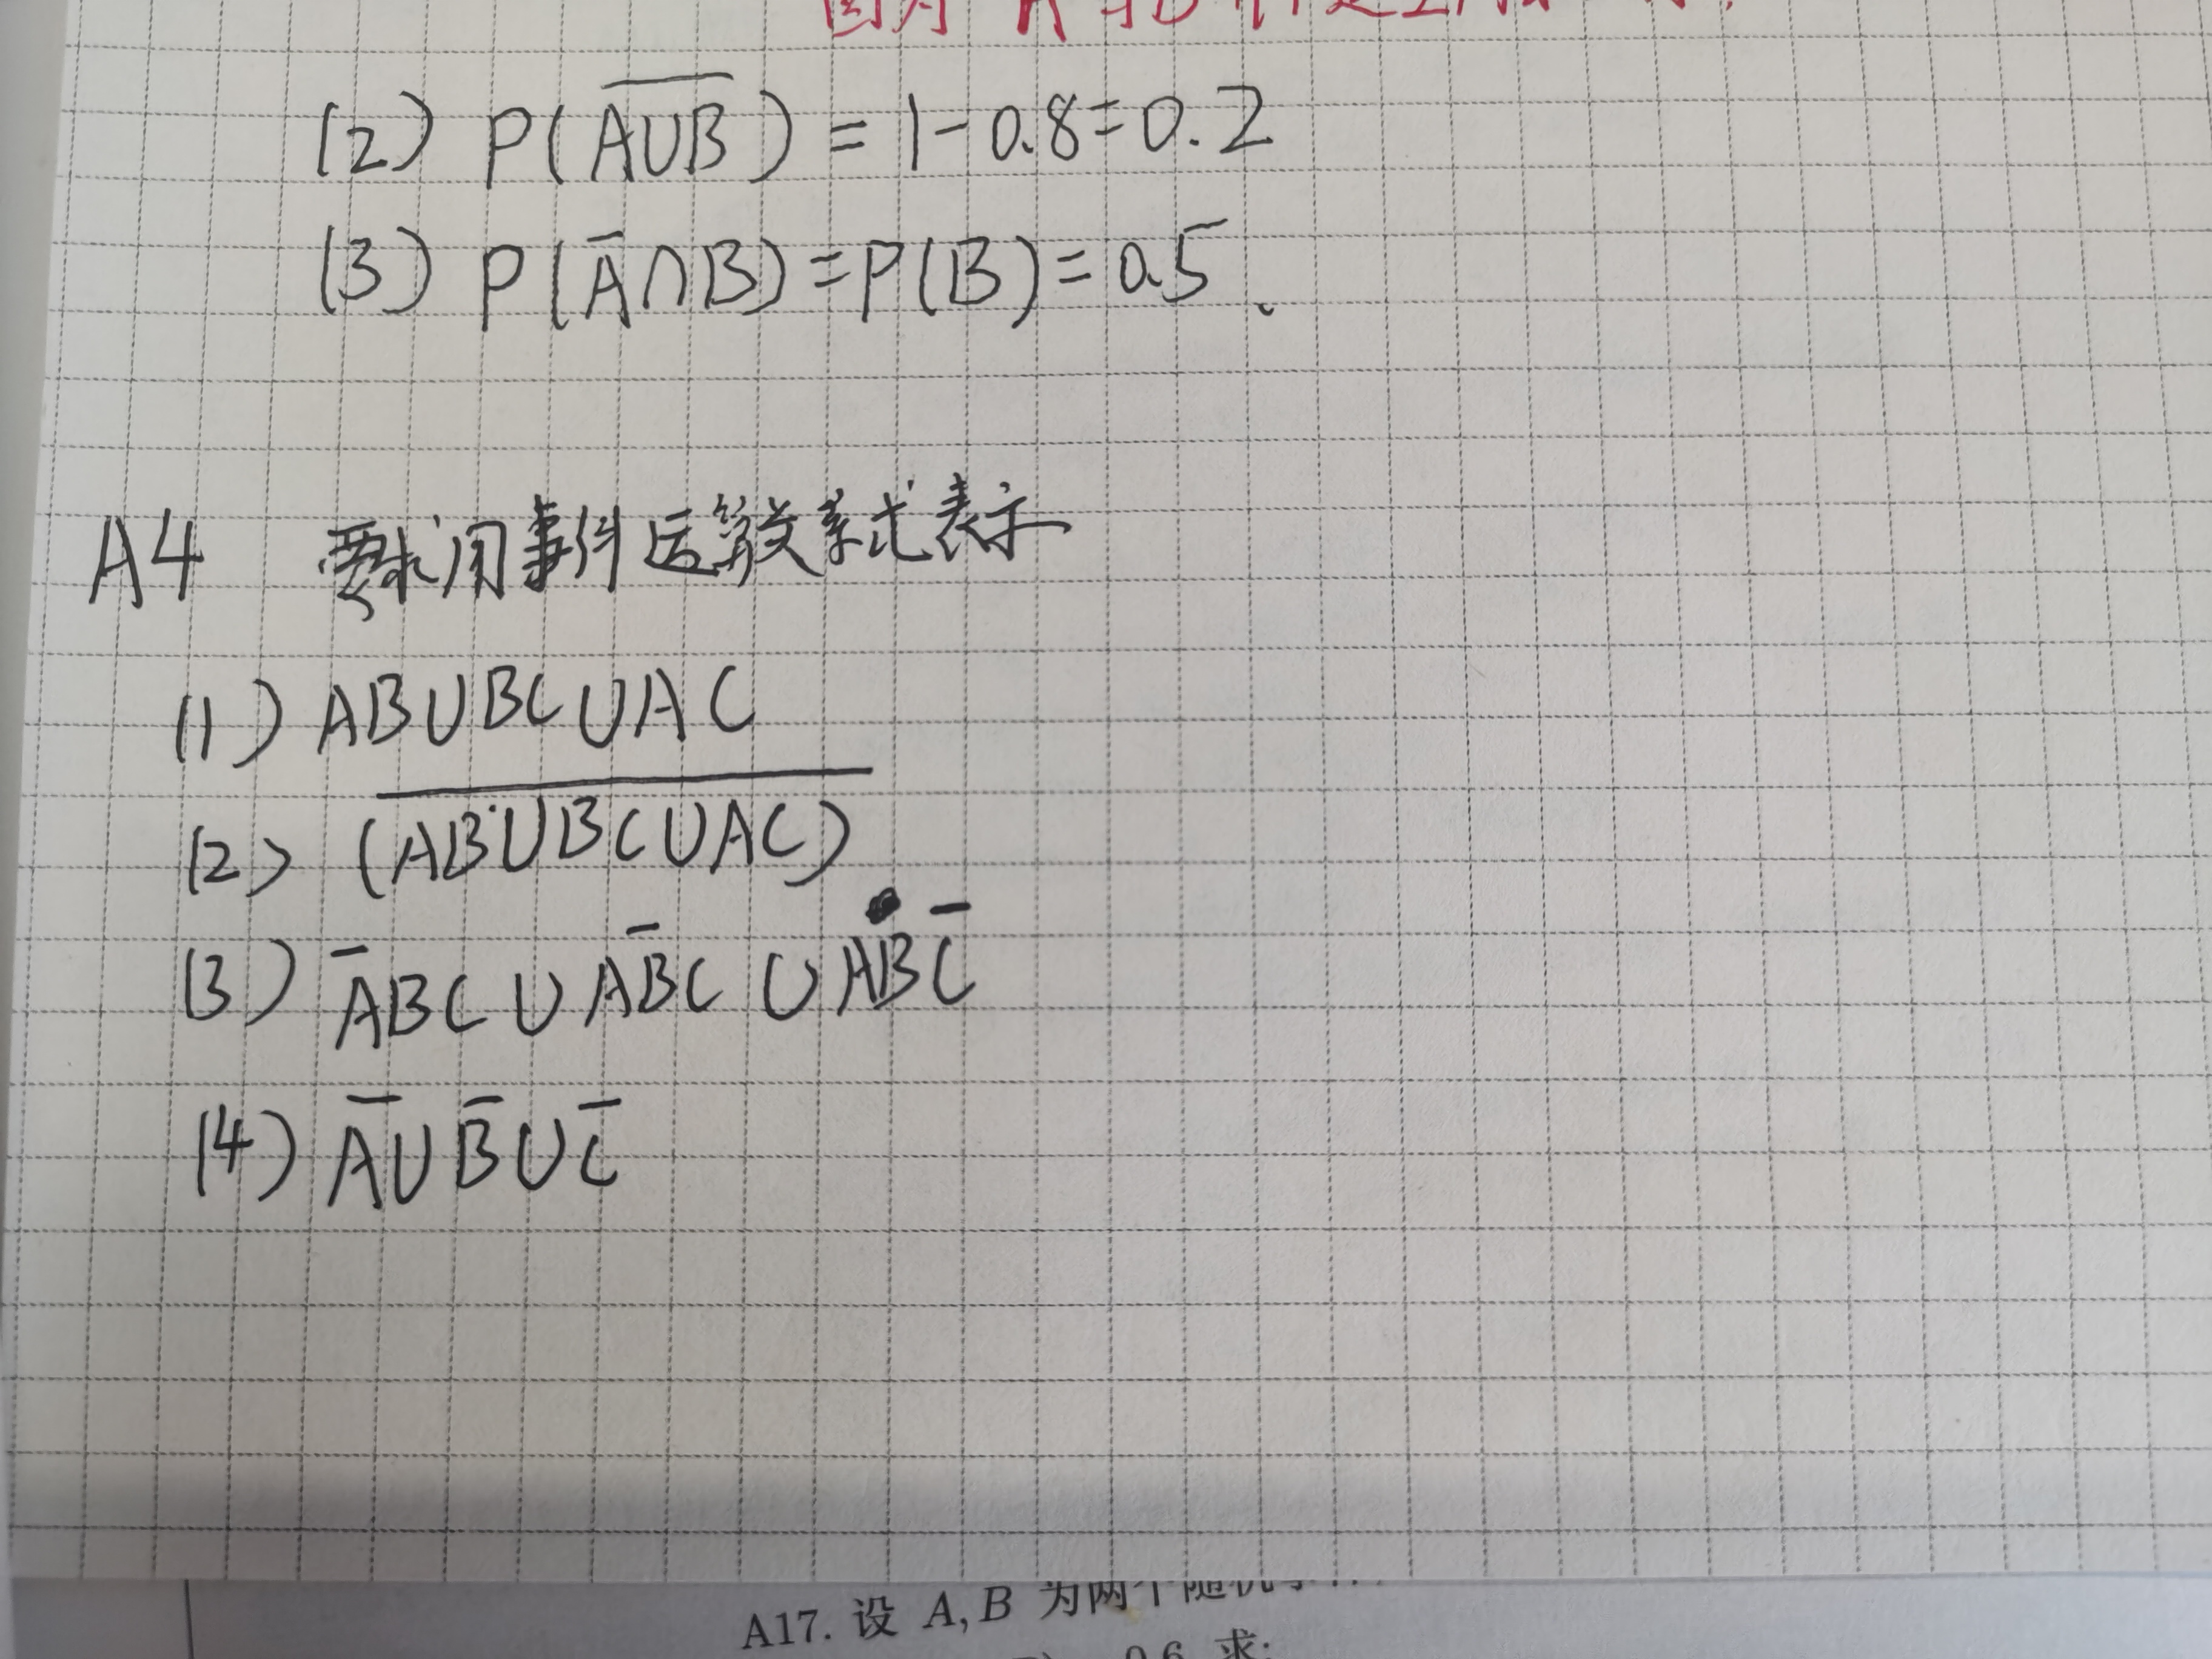 因为 A 与B
(2) P(A̅U̅B̅) = 1-0.8=0.2
(3) P(A̅∩B)=P(B)=0.5.
A4 要求用事件运算关系式表示
(1) ABUBCUAC
(2) (A̅B̅U̅B̅C̅U̅A̅C̅)
(3) A̅BCUAB̅CUABC̅
(4) A̅UB̅UC̅
A17. 设 A,B 为两个随机
0.6 求: